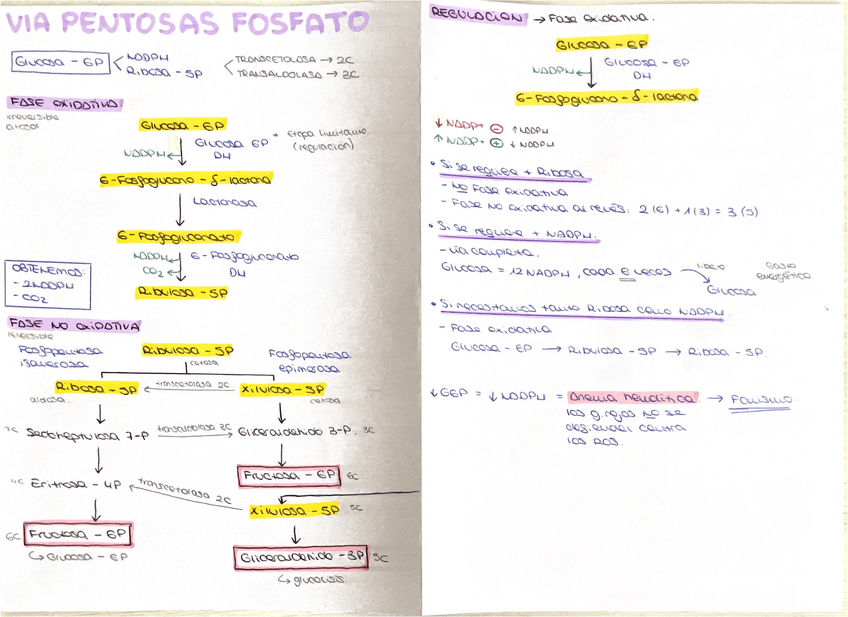 VIA PENTOSAS FOSFATO
Glucosa - 6P
NADPH
Ribosa - 5P
TRANSCETOLASA → 2C
TRANSALDOLASA → 3C
FASE OXIDATIVA
irreversible
citosol
Glucosa - 6P
NADPH
Glucosa 6P
DH
* Etapa limitante
(regulación)
6-Fosfoglucono - δ - lactona
Lactonasa
6-Fosfogluconato
NADPH
CO₂
6-Fosfogluconato
DH
Ribulosa - 5P
OBTENEMOS:
- 2NADPH
- CO₂
FASE NO OXIDATIVA
reversible
Fosfopentosa
isomerasa
Ribulosa - 5P
cetosa
Fosfopentosa
epimerasa
Ribosa - 5P
transcetolasa 2C
Xilulosa - 5P
aldosa
cetosa
7C Sedoheptulosa 7-P
transaldolasa 3C
Gliceraldehido 3-P. 3C
Fructosa - 6P 6C
4C Eritrosa - 4P
transcetolasa 2C
Xilulosa - 5P 5C
6C Fructosa - 6P
↳ Glucosa - 6P
Gliceraldehido - 3P 3C
↳ glucolisis
REGULACION → Fase oxidativa.
Glucosa - 6P
NADPH
Glucosa - 6P
DH
6-Fosfoglucono - δ - lactona
↓ NADP+ ⊖ ↑ NADPH
↑ NADP+ ⊕ ↓ NADPH
• Si se requiere + Ribosa
- No Fase oxidativa
- Fase No oxidativa al revés: 2(6) + 1(3) = 3(5)
• Si se requiere + NADPH.
- Via completa.
Glucosa = 12 NADPH, cada 6 veces
libero
Glucosa
Gasto
energético
• Si necesitamos tanto Ribosa como NADPH.
- Fase oxidativa
Glucosa - 6P → Ribulosa - 5P → Ribosa - 5P.
↓ G6P = ↓ NADPH = Anemia hemolítica → Favismo
los g. rojos no se
defienden contra
los ROS.